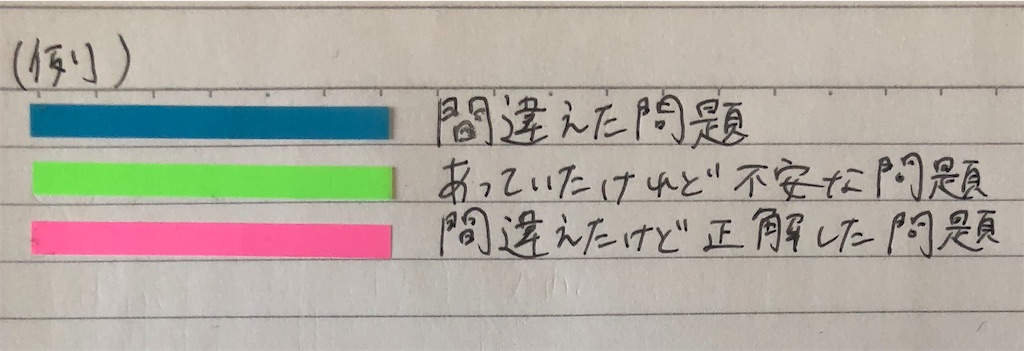 (例)
間違えた問題
あっていたけれど不安な問題
間違えたけど正解した問題